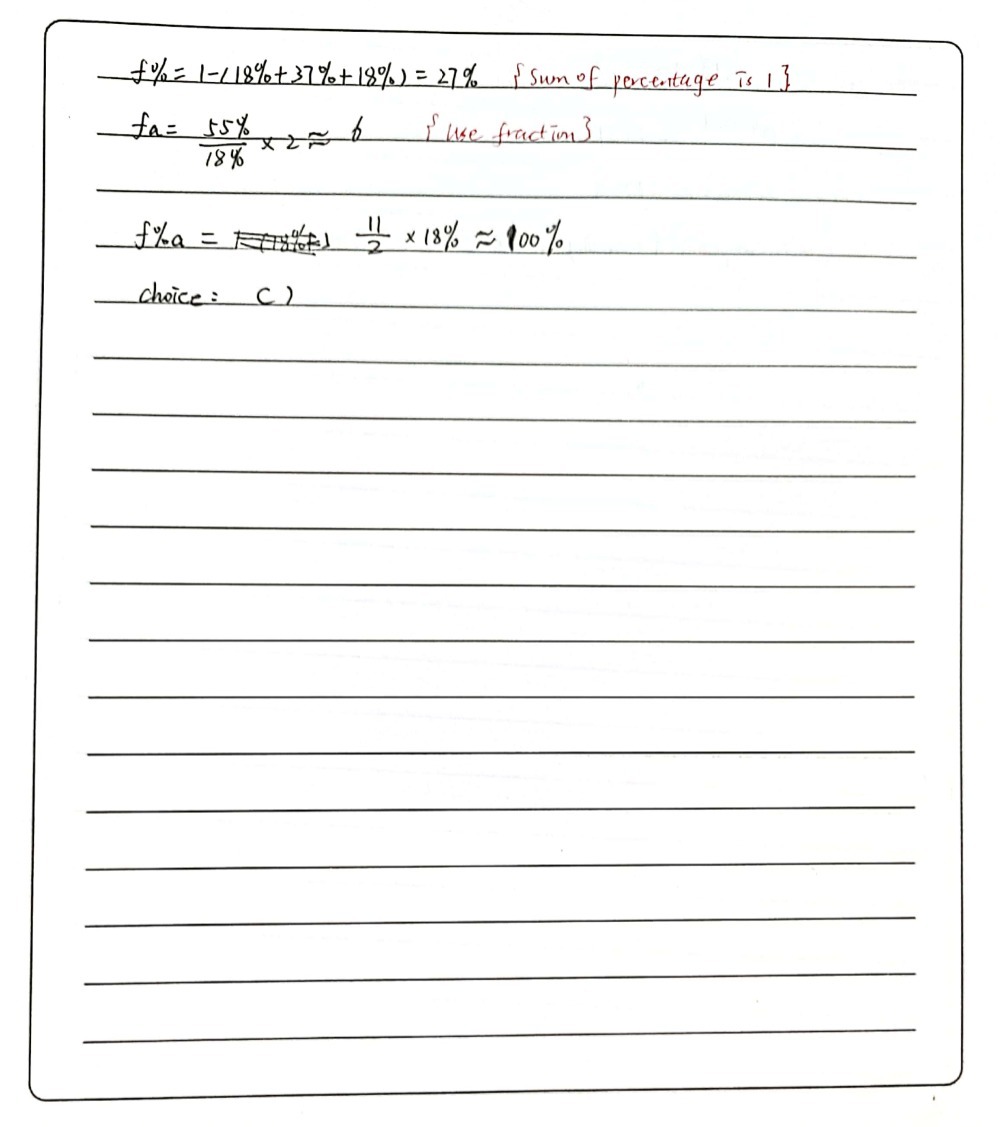 f% = 1-(18%+37%+18%) = 27% {sum of percentage is 1}
fa = 55%/18% × 2 ≈ 6 {use fraction}
f%a = 11/2 × 18% ≈ 100%
choice: C)